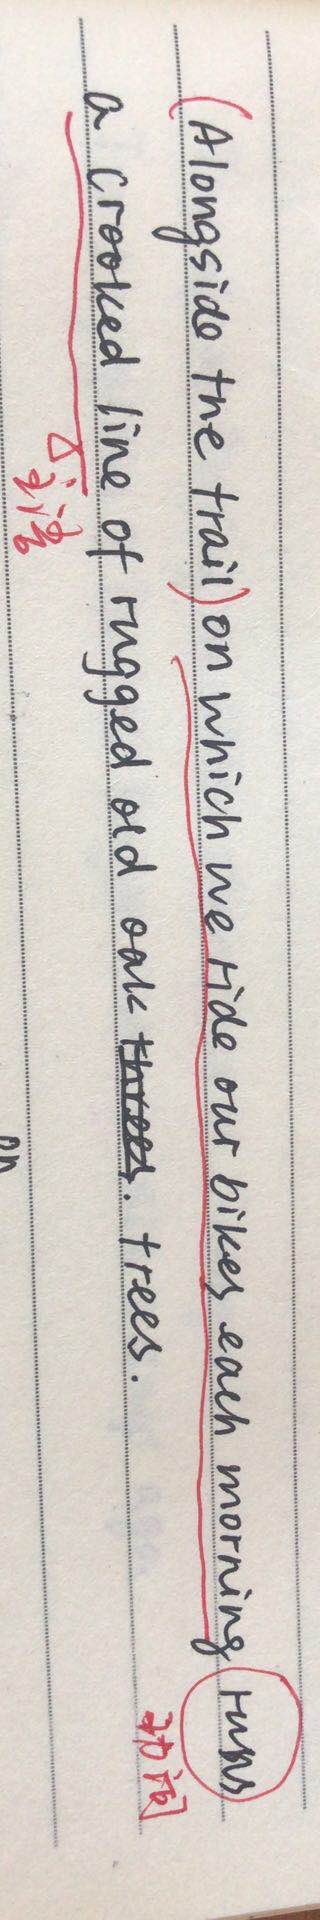 (Alongside the trail) on which we ride our bikes each morning runs
动词
a crooked line of rugged old oak trees.
主语
on